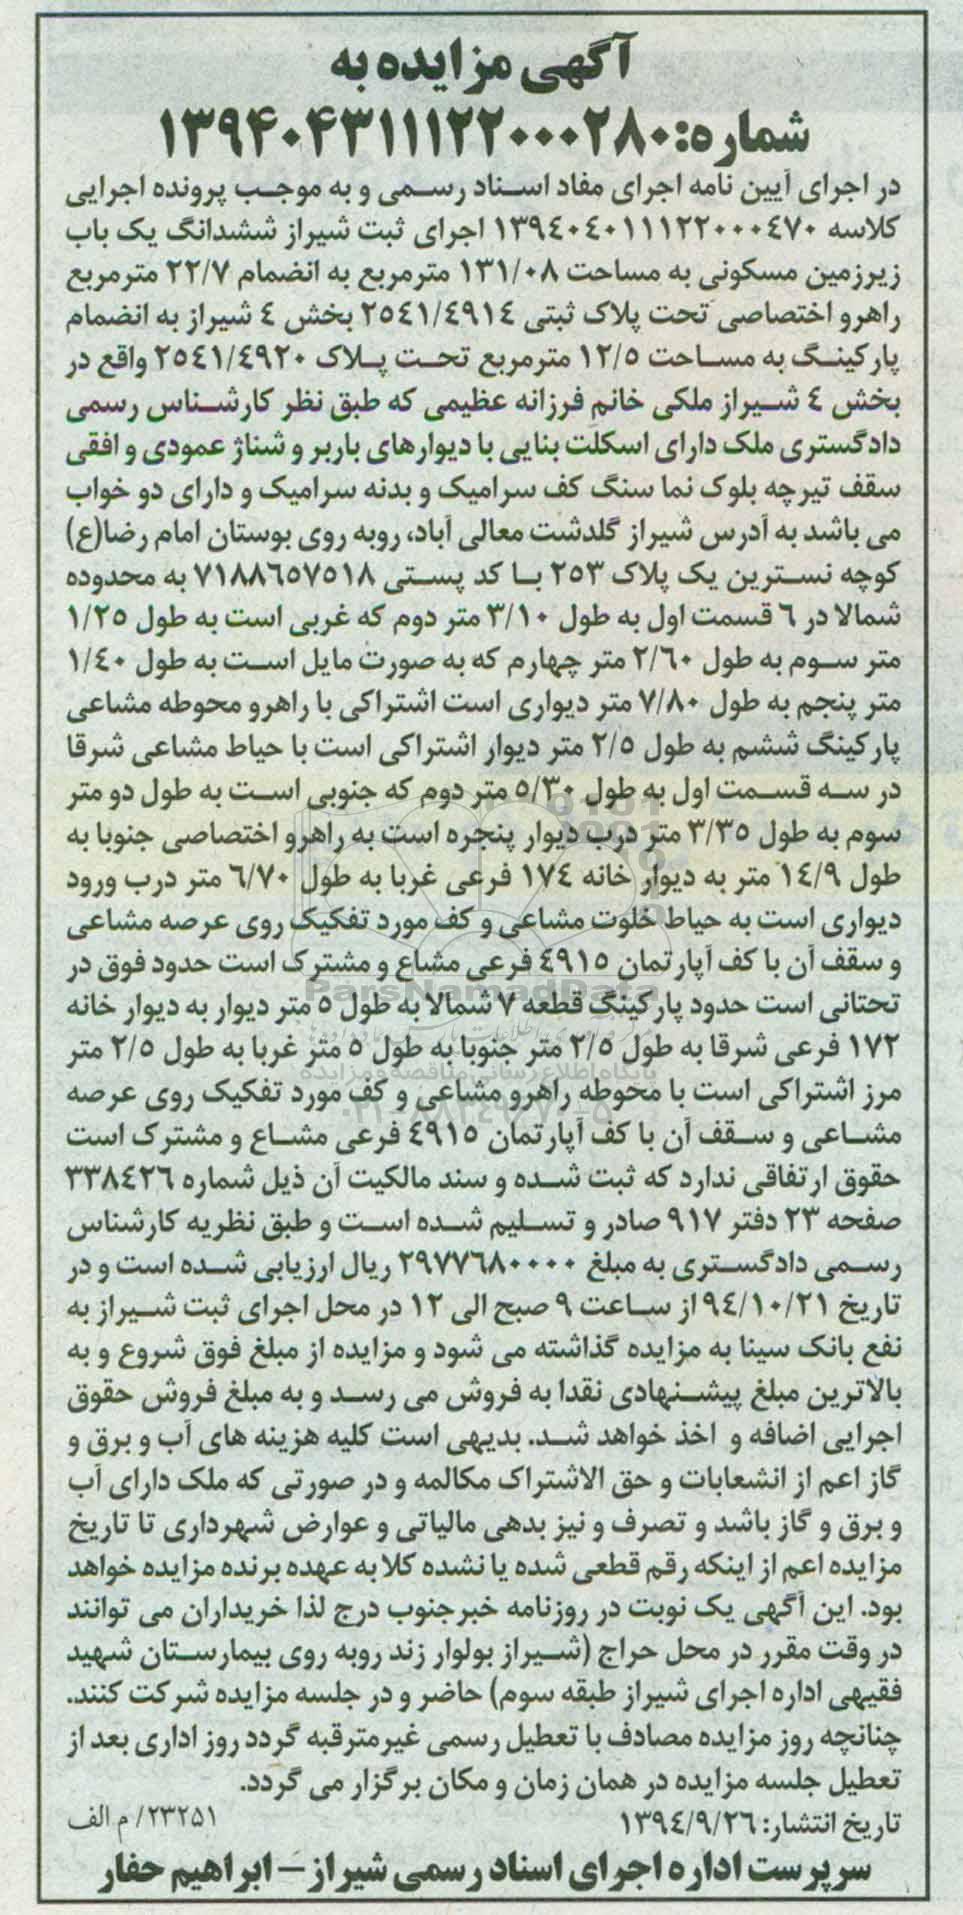 آگهی مزایده به
شماره: ۱۳۹۴۰۴۳۱۱۱۲۲۰۰۰۲۸۰
در اجرای آیین نامه اجرای مفاد اسناد رسمی و به موجب پرونده اجرایی
کلاسه ۱۳۹٤۰٤۰۱۱۱۲۲۰۰۰٤۷۰ اجرای ثبت شیراز ششدانگ یک باب
زیرزمین مسکونی به مساحت ۱۳۱/۰۸ مترمربع به انضمام ۲۲/۷ مترمربع
راهرو اختصاصی تحت پلاک ثبتی ۲٥٤۱/٤۹۱٤ بخش ٤ شیراز به انضمام
پارکینگ به مساحت ۱۲/٥ مترمربع تحت پلاک ۲٥٤۱/٤۹۲۰ واقع در
بخش ٤ شیراز ملکی خانم فرزانه عظیمی که طبق نظر کارشناس رسمی
دادگستری ملک دارای اسکلت بنایی با دیوارهای باربر و شناژ عمودی و افقی
سقف تیرچه بلوک نما سنگ کف سرامیک و بدنه سرامیک و دارای دو خواب
می باشد به آدرس شیراز گلدشت معالی آباد، روبه روی بوستان امام رضا(ع)
کوچه نسترین یک پلاک ۲٥۳ با کد پستی ۷۱۸۸٦٥۷٥۱۸ به محدوده
شمالا در ٦ قسمت اول به طول ۳/۱۰ متر دوم که غربی است به طول ۱/۲٥
متر سوم به طول ۲/٦۰ متر چهارم که به صورت مایل است به طول ۱/٤۰
متر پنجم به طول ۷/۸۰ متر دیواری است اشتراکی با راهرو محوطه مشاعی
پارکینگ ششم به طول ۲/٥ متر دیوار اشتراکی است با حیاط مشاعی شرقا
در سه قسمت اول به طول ٥/۳۰ متر دوم که جنوبی است به طول دو متر
سوم به طول ۳/۳٥ متر درب دیوار پنجره است به راهرو اختصاصی جنوبا به
طول ۱٤/۹ متر به دیوار خانه ۱۷٤ فرعی غربا به طول ٦/۷۰ متر درب ورود
دیواری است به حیاط خلوت مشاعی و کف مورد تفکیک روی عرصه مشاعی
و سقف آن با کف آپارتمان ٤۹۱٥ فرعی مشاع و مشترک است حدود فوق در
ParsNamadData
تحتانی است حدود پارکینگ قطعه ۷ شمالا به طول ٥ متر دیوار به دیوار خانه
۱۷۲ فرعی شرقا به طول ۲/٥ متر جنوبا به طول ٥ متر غربا به طول ۲/٥ متر
پایگاه اطلاع رسانی مناقصه و مزایده
مرز اشتراکی است با محوطه راهرو مشاعی و کف مورد تفکیک روی عرصه
۰۲۱-۸۸۳۴۹۶۷۰-۵
مشاعی و سقف آن با کف آپارتمان ٤۹۱٥ فرعی مشاع و مشترک است
حقوق ارتفاقی ندارد که ثبت شده و سند مالکیت آن ذیل شماره ۳۳۸٤۲٦
صفحه ۲۳ دفتر ۹۱۷ صادر و تسلیم شده است و طبق نظریه کارشناس
رسمی دادگستری به مبلغ ۲۹۷۷٦۸۰۰۰۰ ریال ارزیابی شده است و در
تاریخ ۹٤/۱۰/۲۱ از ساعت ۹ صبح الی ۱۲ در محل اجرای ثبت شیراز به
نفع بانک سینا به مزایده گذاشته می شود و مزایده از مبلغ فوق شروع و به
بالاترین مبلغ پیشنهادی نقدا به فروش می رسد و به مبلغ فروش حقوق
اجرایی اضافه و اخذ خواهد شد. بدیهی است کلیه هزینه های آب و برق و
گاز اعم از انشعابات و حق الاشتراک مکالمه و در صورتی که ملک دارای آب
و برق و گاز باشد و تصرف و نیز بدهی مالیاتی و عوارض شهرداری تا تاریخ
مزایده اعم از اینکه رقم قطعی شده یا نشده کلا به عهده برنده مزایده خواهد
بود. این آگهی یک نوبت در روزنامه خبرجنوب درج لذا خریداران می توانند
در وقت مقرر در محل حراج (شیراز بولوار زند روبه روی بیمارستان شهید
فقیهی اداره اجرای شیراز طبقه سوم) حاضر و در جلسه مزایده شرکت کنند.
چنانچه روز مزایده مصادف با تعطیل رسمی غیرمترقبه گردد روز اداری بعد از
تعطیل جلسه مزایده در همان زمان و مکان برگزار می گردد.
تاریخ انتشار: ۱۳۹٤/۹/۲٦ ۲۳۲۵۱/م الف
سرپرست اداره اجرای اسناد رسمی شیراز – ابراهیم حفار